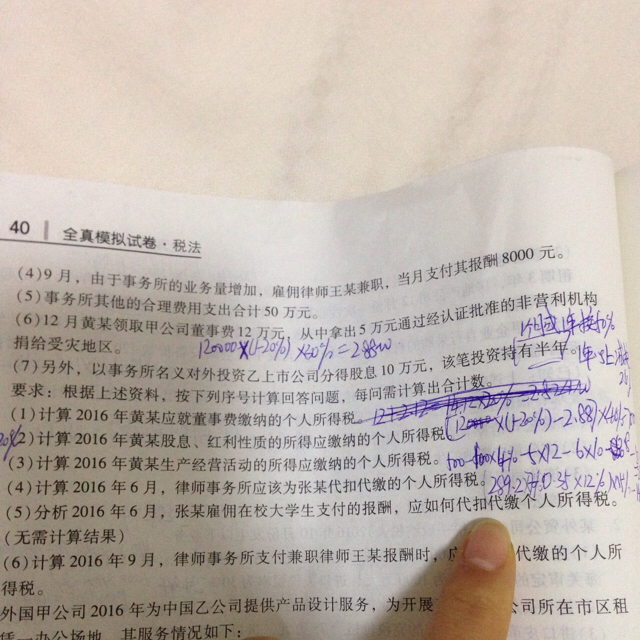 40 全真模拟试卷·税法
(4)9月，由于事务所的业务量增加，雇佣律师王某兼职，当月支付其报酬8000元。
(5)事务所其他的合理费用支出合计50万元。
(6)12月黄某领取甲公司董事费12万元，从中拿出5万元通过经认证批准的非营利机构
捐给受灾地区。
120000×(1-20%)×30%=2.88w
(7)另外，以事务所名义对外投资乙上市公司分得股息10万元，该笔投资持有半年。
要求：根据上述资料，按下列序号计算回答问题，每问需计算出合计数。
(1)计算2016年黄某应就董事费缴纳的个人所得税。
(2)计算2016年黄某股息、红利性质的所得应缴纳的个人所得税
(3)计算2016年黄某生产经营活动的所得应缴纳的个人所得税。
(4)计算2016年6月，律师事务所应该为张某代扣代缴的个人所得税。
(5)分析2016年6月，张某雇佣在校大学生支付的报酬，应如何代扣代缴个人所得税。
(无需计算结果)
(6)计算2016年9月，律师事务所支付兼职律师王某报酬时，代缴的个人所
得税。
外国甲公司2016年为中国乙公司提供产品设计服务，为开展 公司所在市区租
凭一办公场地，其服务情况如下：